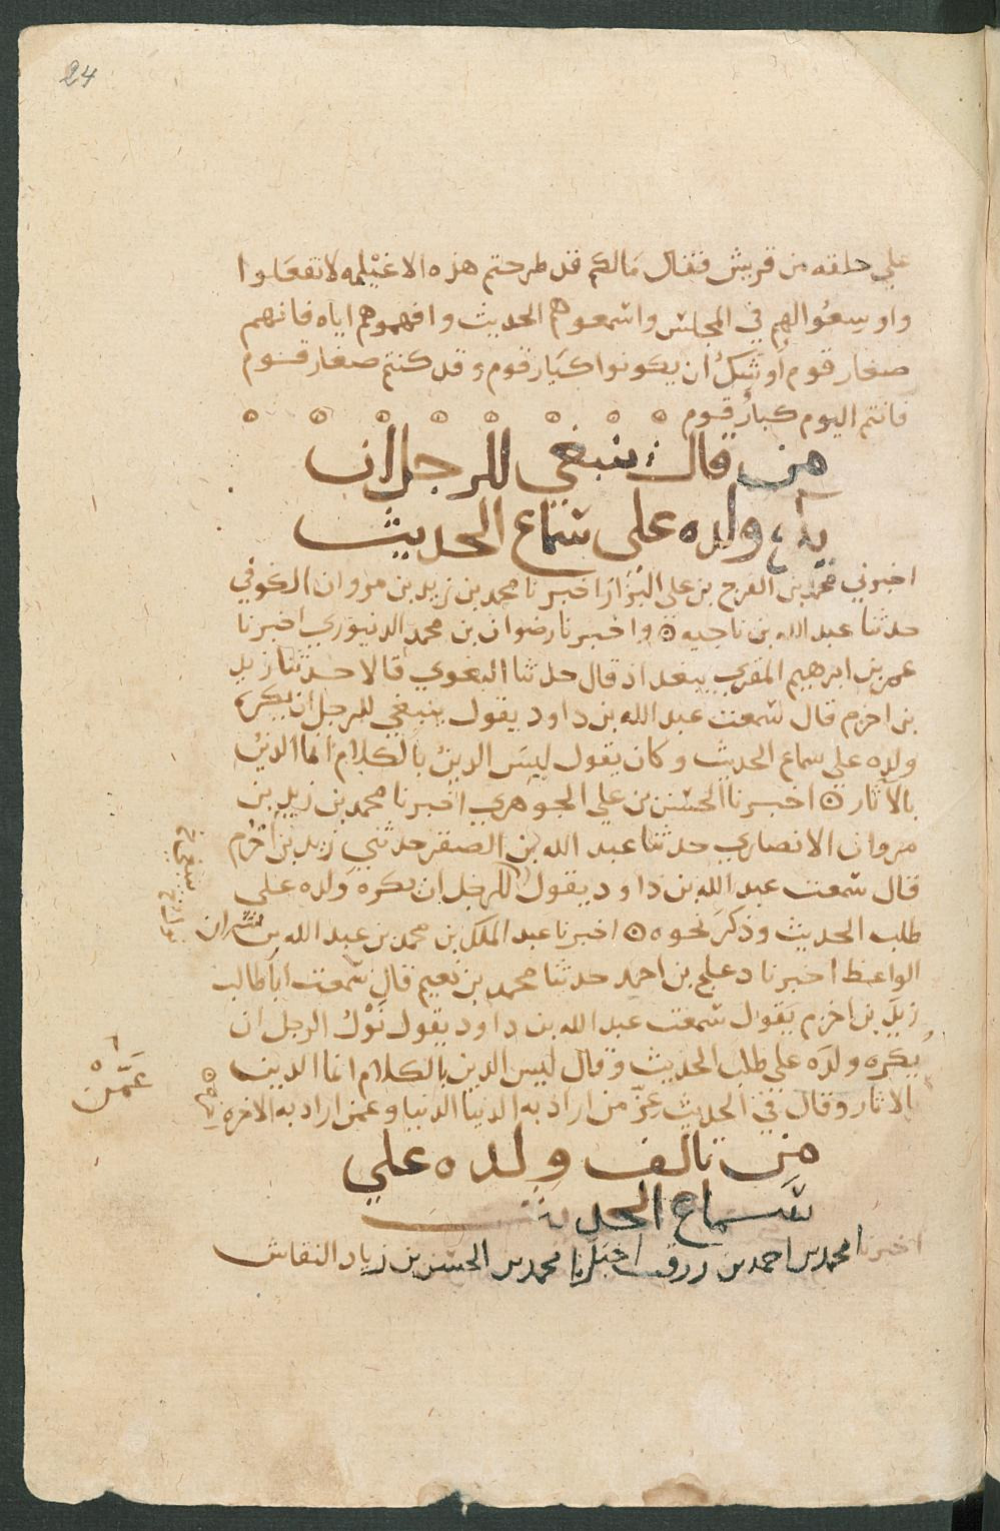 24
علي حلقه من قريش فقال مالكم قد طرحتم هذه الاغيلمه لا تفعلوا
واوسعوا لهم في المجلس واسمعوهم الحديث وافهموهم اياه فانهم
صغار قوم أوشك ان يكونوا كبار قوم وقد كنتم صغار قوم
فانتم اليوم كبار قوم
من قال ينبغي للرجل ان
يكره ولده على سماع الحديث
اخبرني محمد بن الفرج بن علي البزاز اخبرنا محمد بن زيد بن مروان الكوفي
حدثنا عبد الله بن ناجيه واخبرنا رضوان بن محمد الدنيوري اخبرنا
عمر بن ابرهيم المقري ببغداد قال حدثنا البغوي قالا حدثنا زيد
بن اخزم قال سمعت عبد الله بن داود يقول ينبغي للرجل ان يكره
ولده علي سماع الحديث وكان يقول ليس الدين بالكلام انما الدين
بالآثار اخبرنا الحسن بن علي الجوهري اخبرنا محمد بن زيد بن
مروان الانصاري حدثنا عبد الله بن الصقر حدثني زيد بن اخزم
قال سمعت عبد الله بن داود يقول للرجل ان يكره ولده على
طلب الحديث وذكر نحوه اخبرنا عبد الملك بن محمد بن عبد الله بن بشران
الواعظ اخبرنا دعلج بن احمد حدثنا محمد بن نعيم قال سمعت ابا طالب
زيد بن اخزم يقول سمعت عبد الله بن داود يقول نَوْلُ الرجل ان
يكره ولده على طلب الحديث وقال ليس الدين بالكلام انما الدين
بالاثار وقال في الحديث عِزّ من اراد به الدنيا الدنيا وعمن اراد به الاخره
عَمَّنْ
من تالف ولده علي
سماع الحديث
اخبرنا محمد بن احمد بن رزق اخبرنا محمد بن الحسن بن زياد النقاش